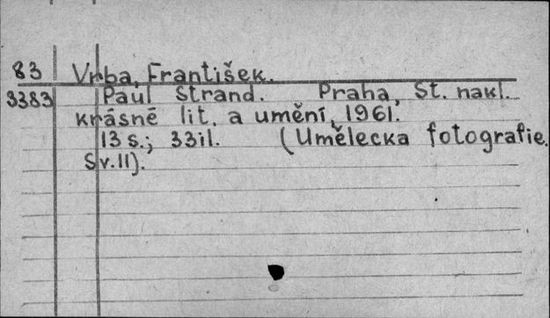 83 Vrba, František.
3383 Paul Strand. Praha, St. nakl.
krásné lit. a umění, 1961.
13 s.; 33il. (Umělecka fotografie.
Sv.11).